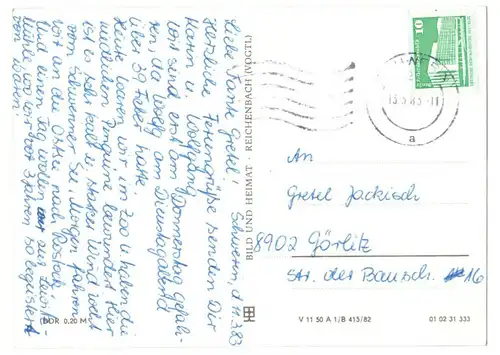 Schwerin, d. 11.3.83
Liebe Tante Gretel!
Herzliche Feriengrüße senden Dir
Karen u. Wolfgang.
Wir sind erst am Donnerstag gefah-
ren, da Wolfg. am Dienstagabend
über 39 Fieber hatte.
Heute waren wir im Zoo u. haben die
niedlichen Pinguine bewundert. Hier
ist es sehr kalt u. starker Wind weht
vom Schweriner See. Morgen fahren
wir an die Ostsee nach Rostock
und einen Tag wollen wir zur
wir vor 3 Jahren so begeistert
von waren.
(DDR 0,20 M)
BILD UND HEIMAT · REICHENBACH (VOGTL)
10
83-11
a
An
Gretel Jackisch
8902 Görlitz
Str. der Bausch. 16
V 11 50 A 1/B 413/82
01 02 31 333